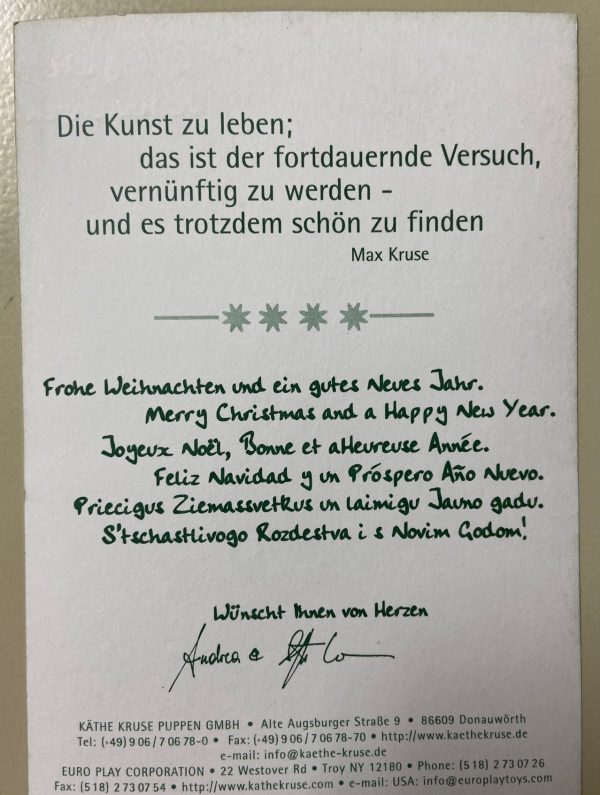 Die Kunst zu leben;
das ist der fortdauernde Versuch,
vernünftig zu werden -
und es trotzdem schön zu finden
Max Kruse
Frohe Weihnachten und ein gutes Neues Jahr.
Merry Christmas and a Happy New Year.
Joyeux Noël, Bonne et aHeureuse Année.
Feliz Navidad y un Próspero Año Nuevo.
Priecigus Ziemassvetkus un laimigu Jauno gadu.
S'tschastlivogo Rozdestva i s Novim Godom!
Wünscht Ihnen von Herzen
Andrea
KÄTHE KRUSE PUPPEN GMBH • Alte Augsburger Straße 9 • 86609 Donauwörth
Tel: (+49) 9 06 / 7 06 78-0 • Fax: (+49) 9 06 / 7 06 78-70 • http://www.kaethekruse.de
e-mail: info@kaethe-kruse.de
EURO PLAY CORPORATION • 22 Westover Rd • Troy NY 12180 • Phone: (518) 2 73 07 26
Fax: (518) 2 73 07 54 • http://www.kathekruse.com • e-mail: USA: info@europlaytoys.com